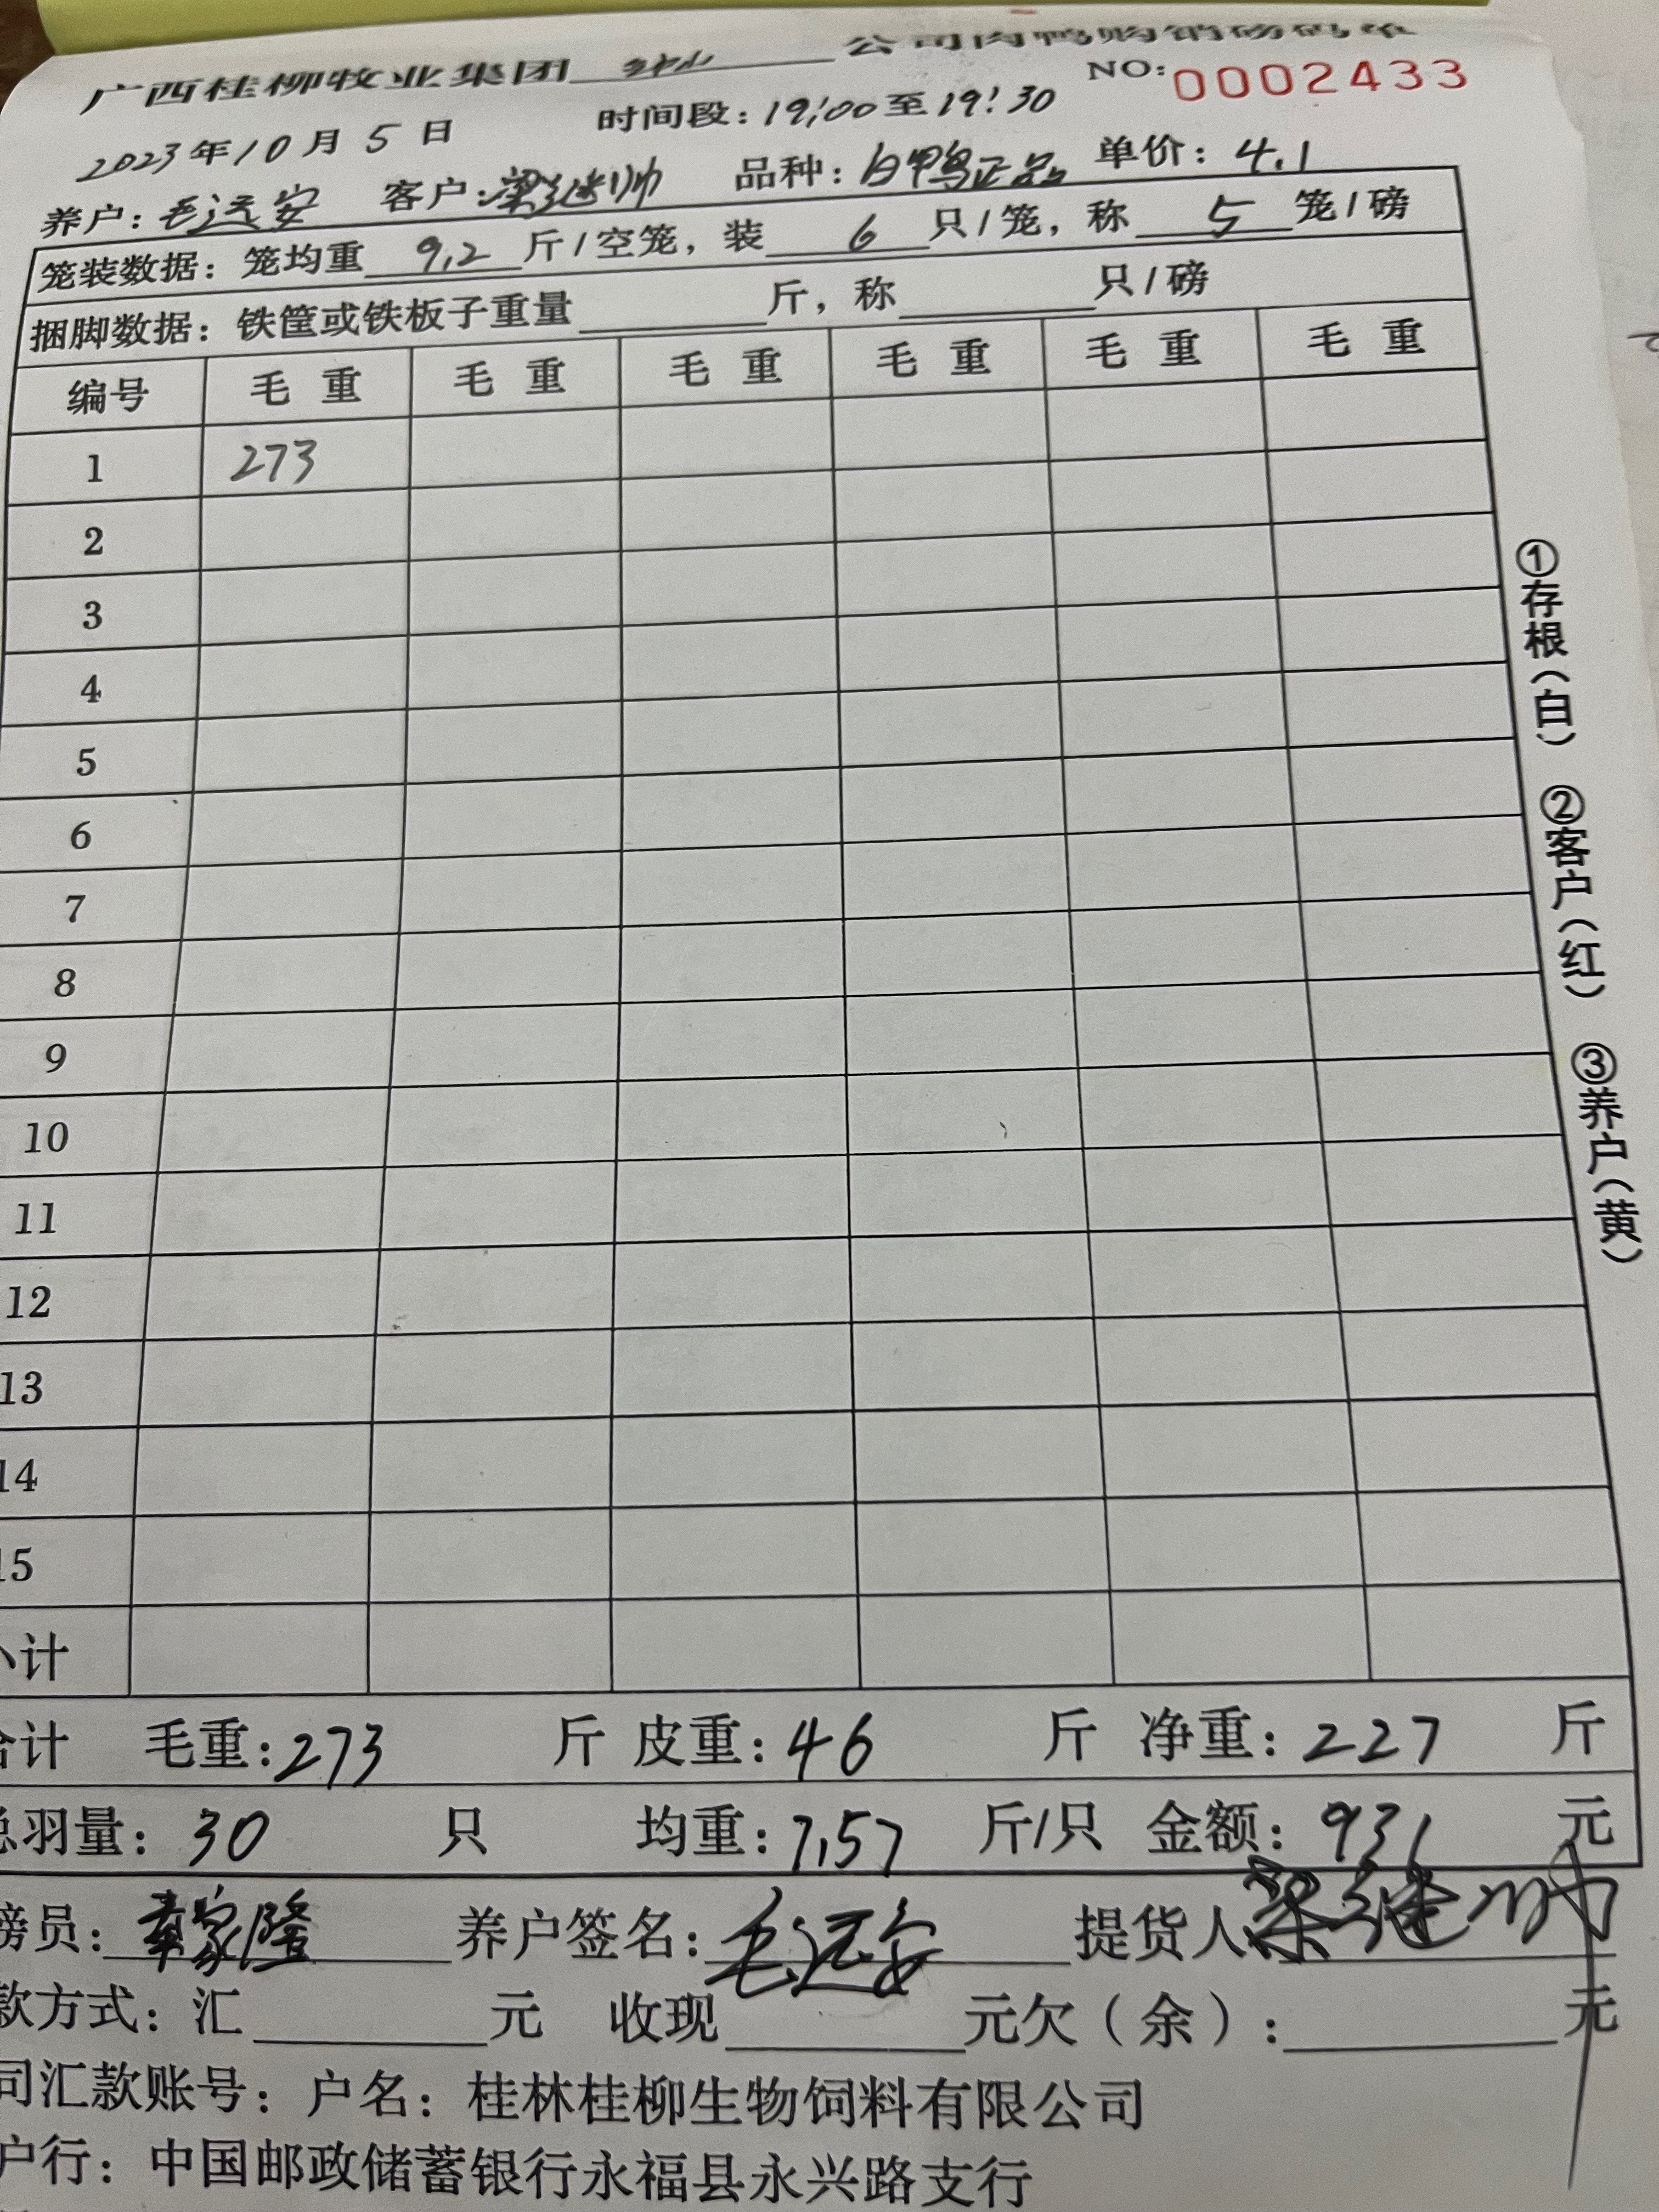 广西桂柳牧业集团 公司肉鸭购销磅码单
NO:0002433
2023年10月5日 时间段:19:00至19:30
养户:毛远安 客户:梁继帅 品种:白鸭正品 单价:4.1
笼装数据:笼均重9.2斤/空笼,装6只/笼,称5笼/磅
捆脚数据:铁筐或铁板子重量 斤,称 只/磅
编号 毛重 毛重 毛重 毛重 毛重 毛重
1 273
2
3
4
5
6
7
8
9
10
11
12
13
14
15
小计
合计 毛重:273 斤 皮重:46 斤 净重:227 斤
总羽量:30 只 均重:7.57 斤/只 金额:931 元
磅员:章家隆 养户签名:毛远安 提货人梁继帅
款方式:汇 元 收现 元欠(余): 元
司汇款账号:户名:桂林桂柳生物饲料有限公司
户行:中国邮政储蓄银行永福县永兴路支行
①存根(白) ②客户(红) ③养户(黄)